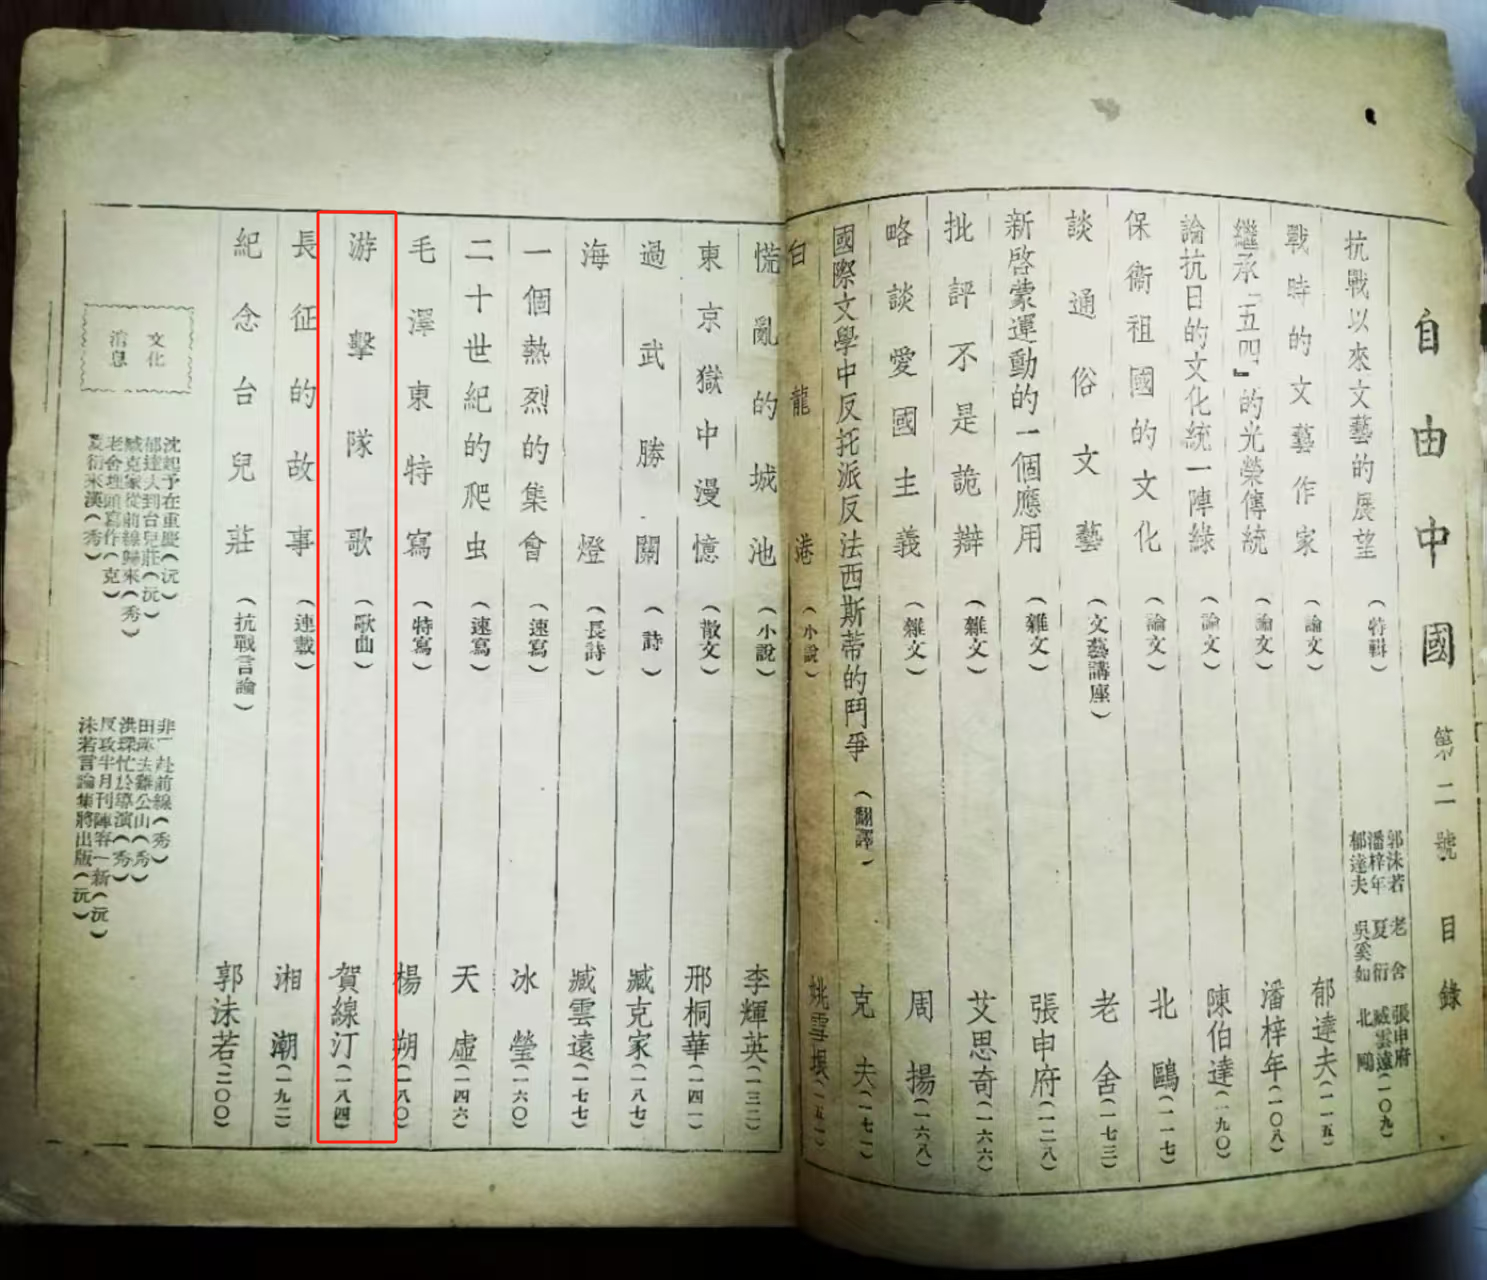 自由中國 第二號 目錄
抗戰以來文藝的展望（特輯）
郭沫若 老舍 張申府
潘梓年 夏衍 臧雲遠（一〇九）
郁達夫 吳奚如 北鷗
戰時的文藝作家（論文）郁達夫（一一五）
繼承「五四』的光榮傳統（論文）潘梓年（一〇八）
論抗日的文化統一陣綫（論文）陳伯達（一九〇）
保衞祖國的文化（論文）北鷗（一一七）
談通俗文藝（文藝講座）老舍（一七三）
新啓蒙運動的一個應用（雜文）張申府（一二八）
批評不是詭辯（雜文）艾思奇（一六六）
略談愛國主義（雜文）周揚（一六八）
國際文學中反托派反法西斯蒂的鬥爭（翻譯）克夫（一七一）
白龍港（小說）姚雪垠（一五一）
慌亂的城池（小說）李輝英（一三二）
東京獄中漫憶（散文）邢桐華（一四一）
過武勝關（詩）臧克家（一八七）
海燈（長詩）臧雲遠（一七七）
一個熱烈的集會（速寫）冰瑩（一六〇）
二十世紀的爬虫（速寫）天虛（一四六）
毛澤東特寫（特寫）楊朔（一八〇）
游擊隊歌（歌曲）賀線汀（一八四）
長征的故事（連載）湘潮（一九二）
紀念台兒莊（抗戰言論）郭沫若（二〇〇）
文化
消息
沈起予在重慶（沅）
郁達夫到台兒莊（沅）
臧克家從前線歸來（秀）
老舍埋頭寫作（克）
夏衍來漢（秀）
非厂赴前線（秀）
田漢去雞公山（秀）
洪深忙於導演（秀）
反攻半月刊陣容一新（沅）
沫若言論集將出版（沅）